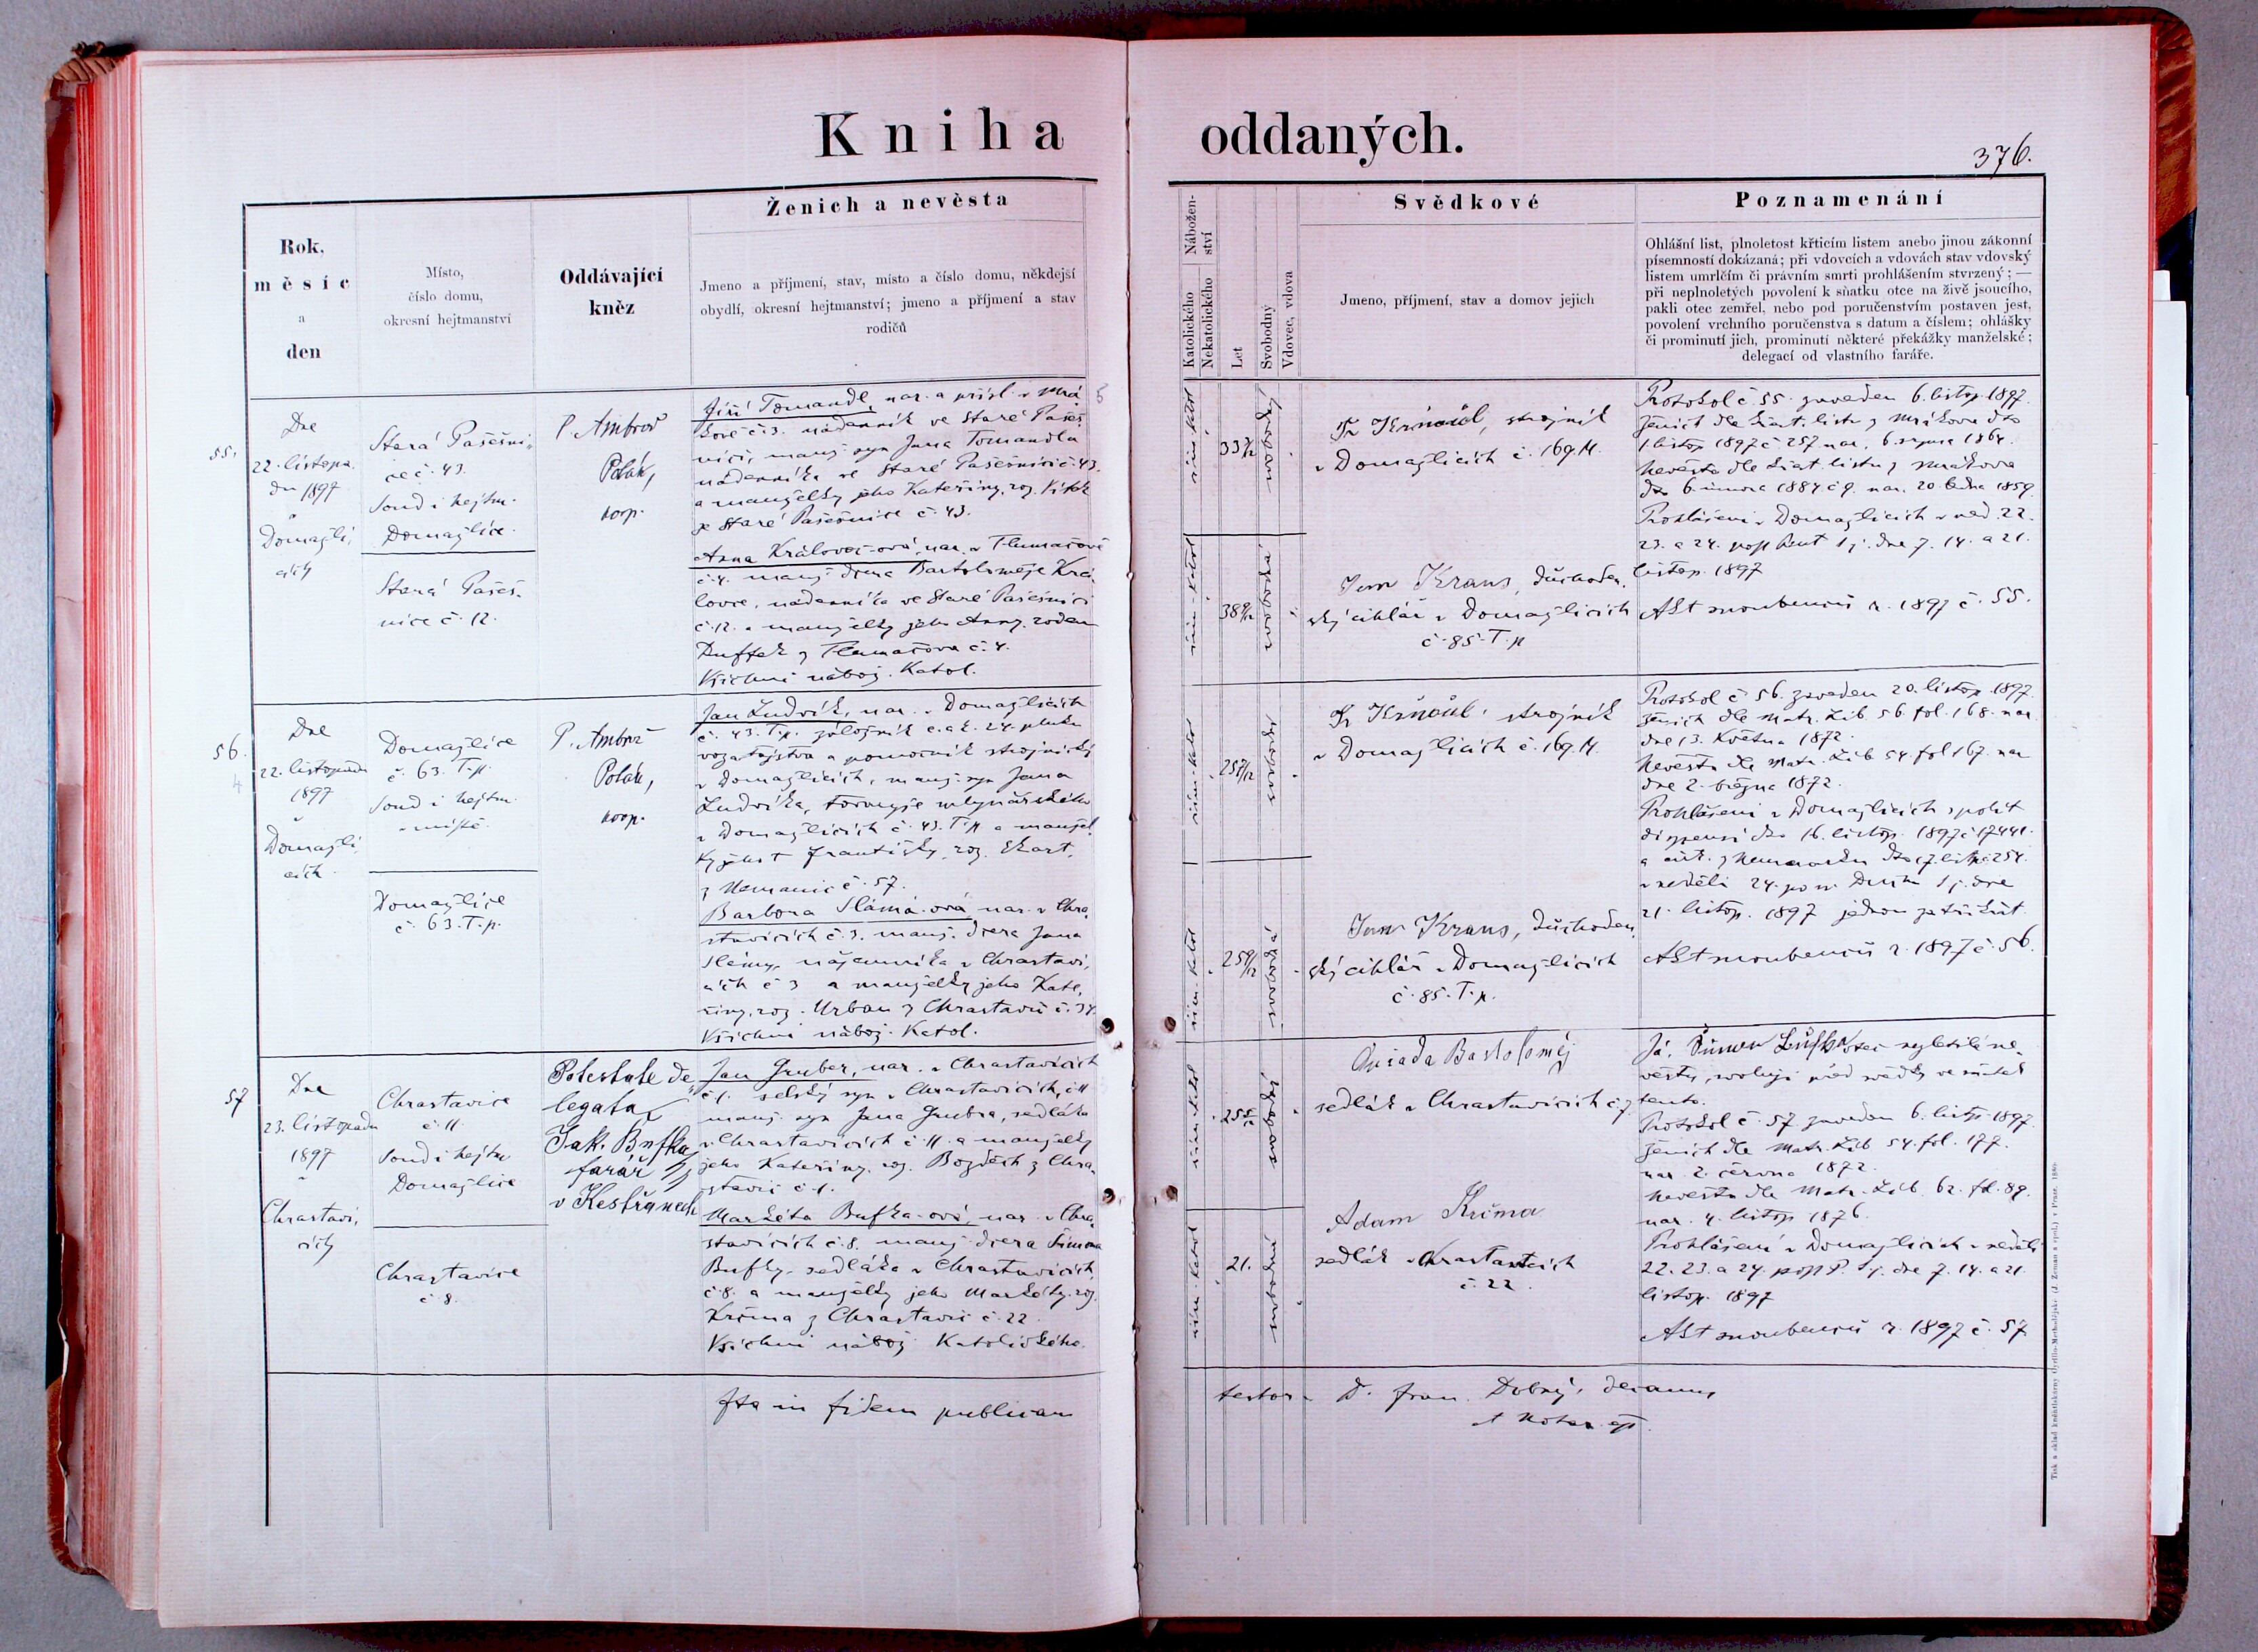 Kniha oddaných.
376.
Rok,
měsíc
a
den
Místo,
číslo domu,
okresní hejtmanství
Oddávající
kněz
Ženich a nevěsta
Jmeno a příjmení, stav, místo a číslo domu, někdejší
obydlí, okresní hejtmanství; jmeno a příjmení a stav
rodičů
Nábožen-
ství
Katolického
Nekatolického
Let
Svobodný
Vdovec, vdova
Svědkové
Jmeno, příjmení, stav a domov jejich
Poznamenání
Ohlášní list, plnoletost křticím listem anebo jinou zákonní
písemností dokázaná; při vdovcích a vdovách stav vdovský
listem umrlčím či právním smrti prohlášením stvrzený; —
při neplnoletých povolení k sňatku otce na živě jsoucího,
pakli otec zemřel, nebo pod poručenstvím postaven jest,
povolení vrchního poručenstva s datum a číslem; ohlášky
či prominutí jich, prominutí některé překážky manželské;
delegací od vlastního faráře.
55.
Dne
22. listopa-
du 1897
v
Domažli-
cích
Stará Pašešni-
ce č. 43.
soud i hejtm.
Domažlice.
Stará Pašeš-
nice č. 12.
P. Ambrož
Polák,
koop.
Jiří Tomandl, nar. a přísl. v Mrá-
kově č. 3. nádenník ve Staré Pašeš-
nici, manž. syn Jana Tomandla
nádenníka ve Staré Pašešnici č. 43.
a manželky jeho Kateřiny, roz. Vítek
ze Staré Pašešnice č. 43.
Anna Královec-ová, nar. v Tlumačově
č. 4. manž. dcera Bartoloměje Krá-
lovce, nádenníka ve Staré Pašešnici
č. 12. a manželky jeho Anny, rozen
Duffek z Tlumačova č. 4.
Všichni nábož. Katol.
řím. katol
svobodný
řím. katol
svobodná
Fr Krňoul, strojník
v Domažlicích č. 169. M.
Jan Kraus, důchoden-
ský cihlář v Domažlicích
č. 85. T. p
Protokol č. 55. zaveden 6. listop. 1897.
ženich dle křest. listu z Mrákova dto
1 listop 1897 č 257 nar. 6. srpna 1864.
Nevěsta dle křest. listu z Mrákova
dto 6. února 1884 č 9. nar. 20. ledna 1859.
Prohlášeni v Domažlicích v ned. 22.
23. a 24. po sv. Duchu t. j. dne 7. 14. a 21.
listop. 1897
Akt snoubenců r. 1897 č. 55.
56.
4
Dne
22. listopadu
1897
v
Domažli-
cích
Domažlice
č. 63. T. p.
soud i hejtm.
v místě.
Domažlice
č. 63. T. p.
P. Ambrož
Polák,
koop.
Jan Ludvík, nar. v Domažlicích
č. 43. T. p. záložník c. a k. 24. pluku
vozatajstva a pomocník strojnický
v Domažlicích, manž. syn Jana
Ludvíka, tovaryše mlynářského
v Domažlicích č. 43. T. p. a manžel-
ky jeho † Františky, roz. Ekart,
z Nemanic č. 57.
Barbora Sláma-ová nar. v Chra-
stavicích č. 3. manž. dcera Jana
Slámy, nájemníka v Chrastavi-
cích č 3 a manželky jeho Kate-
řiny, roz. Urban z Chrastavic č. 34.
Všichni nábož. Katol.
řím. katol
svobodný
řím. katol
svobodná
Fr Krňoul, strojník
v Domažlicích č. 169. M.
Jan Kraus, důchoden-
ský cihlář v Domažlicích
č. 85. T. p.
Protokol č 56. zaveden 20. listop. 1897.
ženich dle Matr. Lib 56. fol. 168. nar
dne 13. května 1872.
Nevěsta dle Matr. Lib 54 fol 167. nar
dne 2. března 1872.
Prohlášeni v Domažlicích s polit
dispensí dto 16. listop. 1897 č 17441.
v neděli 24. po sv. Duchu t. j. dne
21. listop. 1897 jednou za třikrát.
Akt snoubenců r. 1897 č. 56.
57
Dne
23. listopadu
1897
v
Chrastavi-
cích
Chrastavice
č. 11.
soud i hejtm
Domažlice
Chrastavice
č. 8.
Potestate de-
legata
Jak. Bufka
farář
v Kestřanech
Jan Gruber, nar. v Chrastavicích
č 1. selský syn v Chrastavicích, č 11
manž. syn Jana Grubra, sedláka
v Chrastavicích č. 11. a manželky
jeho Kateřiny, roz. Bozděch z Chra-
stavic č. 1.
Markéta Bufka-ová, nar. v Chra-
stavicích č. 8. manž. dcera Šimona
Bufky, sedláka v Chrastavicích
č. 8. a manželky jeho Markéty, roz.
Krčma z Chrastavic č. 22.
Všichni nábož. Katolického.
řím. katol
svobodný
řím. katol
21.
svobodná
Bartoloměj
sedlák v Chrastavicích č. 7
Adam Krčma
sedlák v Chrastavicích
č. 22.
Já, Šimon Bufka otec nezletilé ne-
věsty, svoluji před svědky ve sňatek
tento.
Protokol č. 57. zaveden 6. listop. 1897.
ženich dle Matr. Lib 54. fol. 177.
nar. 2. června 1872.
Nevěsta dle Matr. Lib. 62. fol. 89.
nar. 4. listop 1876.
Prohlášeni v Domažlicích v neděli
22. 23. a 24. po sv. D. t. j. dne 7. 14. a 21.
listop. 1897
Akt snoubenců r. 1897 č. 57
Ita in fidem publicam
testor D. Fran. Dobrý, decanus
et Notar. ep.
Tisk a sklad knihtiskárny Cyrillo-Methodějské (J. Zeman a spol.) v Praze.